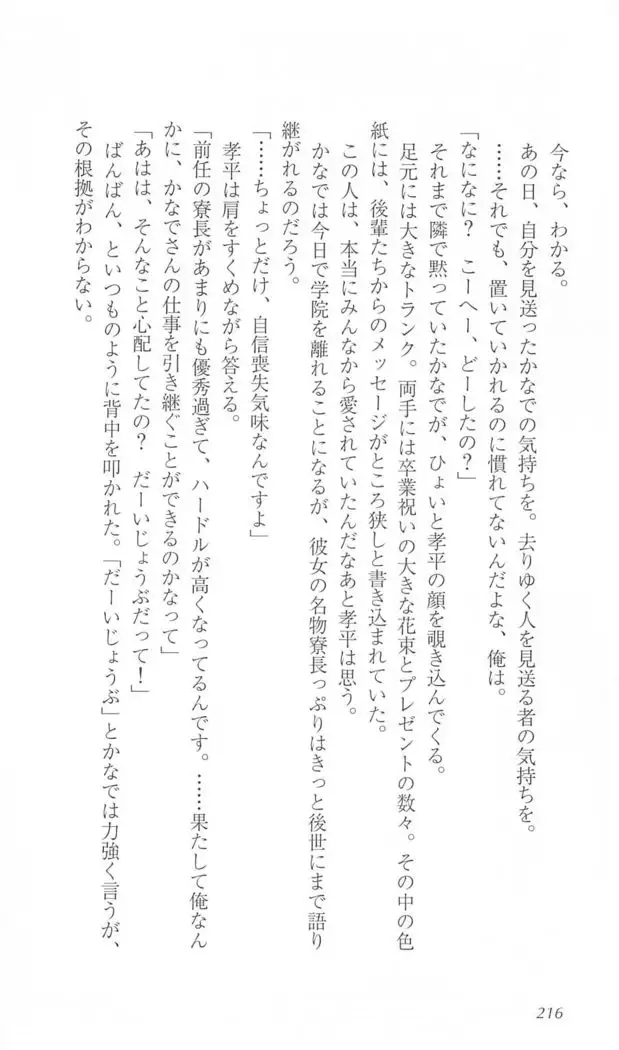 今なら、わかる。
　あの日、自分を見送ったかなでの気持ちを。去りゆく人を見送る者の気持ちを。
　……それでも、置いていかれるのに慣れてないんだよな、俺は。
「なになに？　こーへー、どーしたの？」
　それまで隣で黙っていたかなでが、ひょいと孝平の顔を覗き込んでくる。
　足元には大きなトランク。両手には卒業祝いの大きな花束とプレゼントの数々。その中の色
紙には、後輩たちからのメッセージがところ狭しと書き込まれていた。
　この人は、本当にみんなから愛されていたんだなあと孝平は思う。
　かなでは今日で学院を離れることになるが、彼女の名物寮長っぷりはきっと後世にまで語り
継がれるのだろう。
「……ちょっとだけ、自信喪失気味なんですよ」
　孝平は肩をすくめながら答える。
「前任の寮長があまりにも優秀過ぎて、ハードルが高くなってるんです。……果たして俺なん
かに、かなでさんの仕事を引き継ぐことができるのかなって」
「あはは、そんなこと心配してたの？　だーいじょうぶだって！」
　ばんばん、といつものように背中を叩かれた。「だーいじょうぶ」とかなでは力強く言うが、
その根拠がわからない。
216